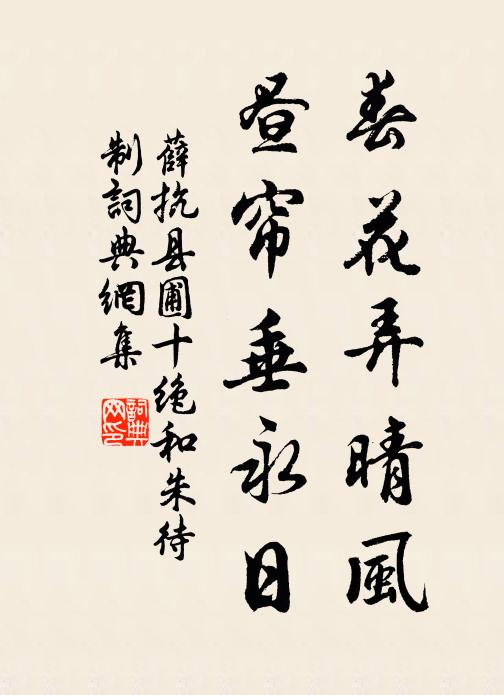 春花弄晴風
昼帘垂永日
薛抗县圃十绝和朱待
制詞典網集
詞典網印